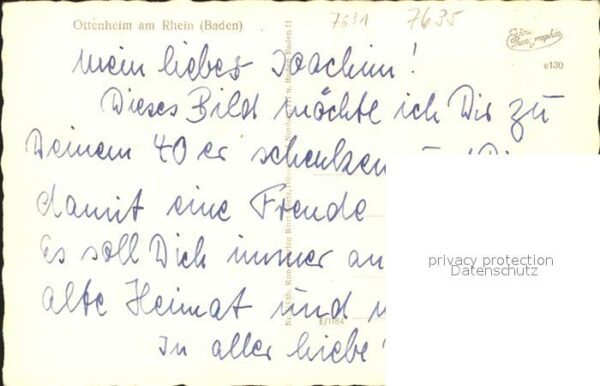 Ottenheim am Rhein (Baden)
7631 7635
Echte Photographie
e130
Mein lieber Joachim!
Dieses Bild möchte ich Dir zu
Deinem 40er schenken
damit eine Freude
Es soll Dich immer an
alte Heimat und
In aller Liebe
E/1184
privacy protection
Datenschutz